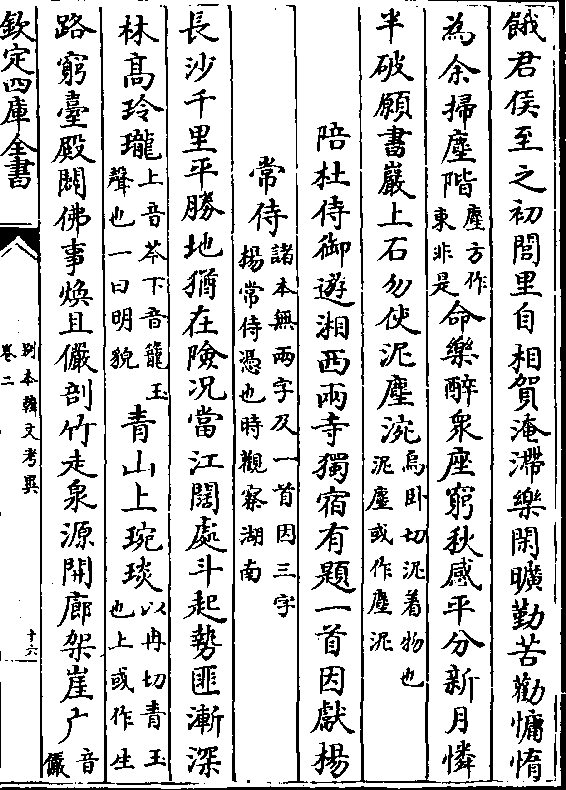 餓君侯至之初閭里自相賀淹滯樂閑曠勤苦勸慵惰
為余掃塵階塵方作東非是命樂醉衆座窮秋感平分新月憐
半破願書巖上石勿使泥塵涴烏卧切泥着物也泥塵或作塵泥
陪杜侍御遊湘西兩寺獨宿有題一首因獻楊
常侍諸本無兩字及一首因三字楊常侍憑也時觀察湖南
長沙千里平勝地猶在險况當江闊處斗起勢匪漸深
林髙玲瓏上音苓下音籠玉聲也一曰明貌青山上琬琰以冉切青玉也上或作生
路窮臺殿闢佛事煥且儼剖竹走泉源開廊架崖广音儼
欽定四庫全書
别本韓文考異
卷二
十六